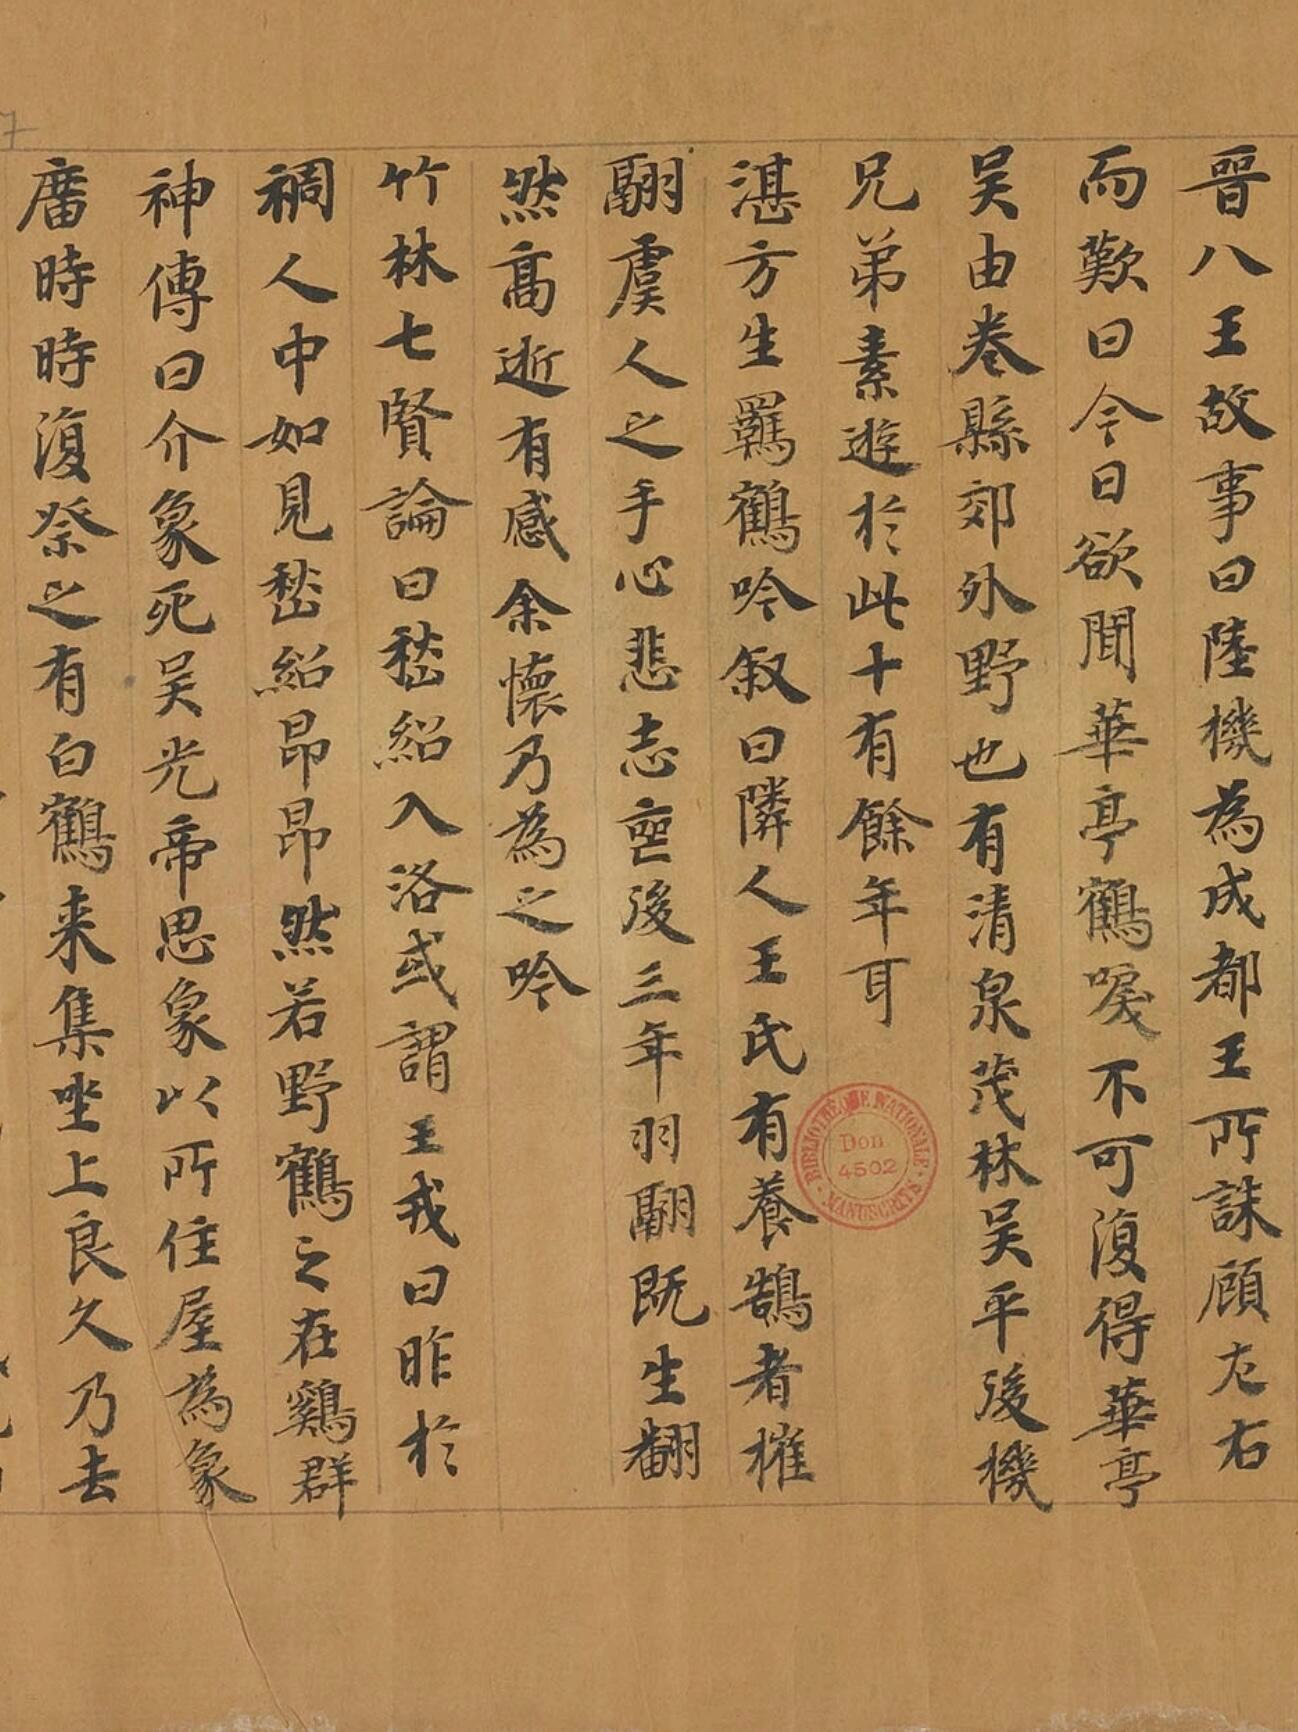 晉八王故事曰陸機為成都王所誅顧左右
而歎曰今日欲聞華亭鶴唳不可復得華亭
吴由巻縣郊外野也有清泉茂林吴平後機
兄弟素遊於此十有餘年耳
湛方生羈鶴吟叙曰隣人王氏有養鵠者摧
翮虞人之手心悲志䓇後三年羽翮既生翻
然髙逝有感余懷乃為之吟
竹林七賢論曰嵇紹入洛或謂王戎曰昨於
稠人中如見嵇紹昂昂然若野鶴之在鷄群
神傳曰介象死吴光帝思象以所住屋為象
廇時時復祭之有白鶴来集坐上良久乃去
BIBLIOTHÈQUE NATIONALE
Don
4502
MANUSCRITS
7